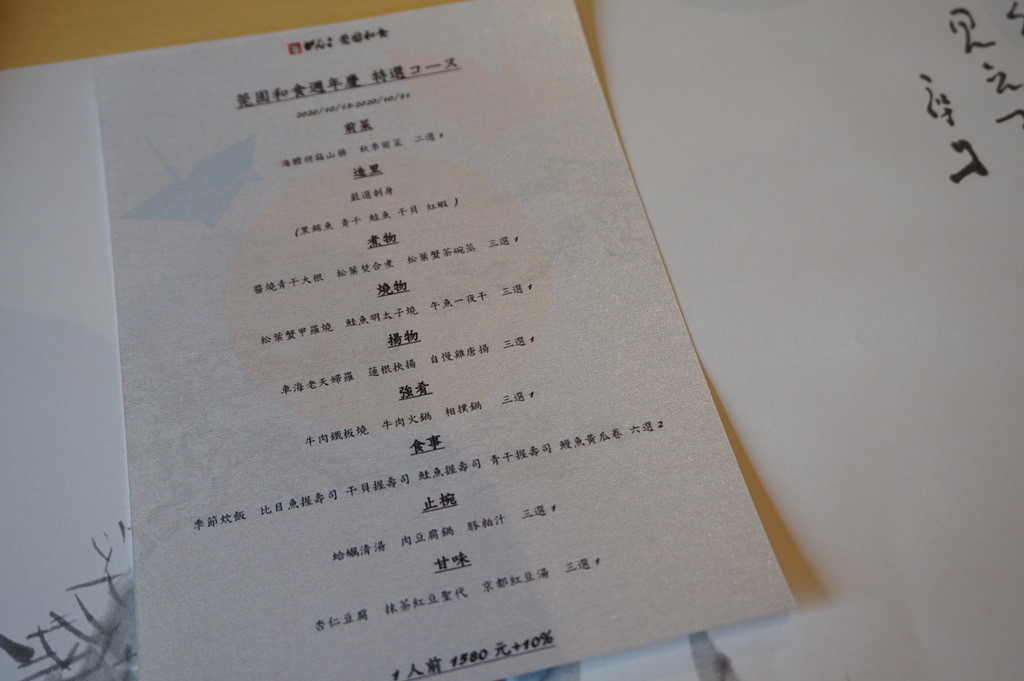 がんこ 莞固和食
莞固和食週年慶 特選コース
2020/10/12-2020/10/31
前菜
海膽胡麻山藥 秋季前菜 二選1
造里
嚴選刺身
(黑鮪魚 青干 鮭魚 干貝 紅蝦)
煮物
醬燒青干大根 松葉焚合煮 松葉蟹茶碗蒸 三選1
燒物
松葉蟹甲羅燒 鮭魚明太子燒 午魚一夜干 三選1
揚物
車海老天婦羅 蓮根挾揚 自慢雞唐揚 三選1
強肴
牛肉鐵板燒 牛肉火鍋 相撲鍋 三選1
食事
季節炊飯 比目魚握壽司 干貝握壽司 鮭魚握壽司 青干握壽司 鰻魚黃瓜卷 六選2
止椀
蛤蠣清湯 肉豆腐鍋 豚粕汁 三選1
甘味
杏仁豆腐 抹茶紅豆聖代 京都紅豆湯 三選1
1人前 1380 元+10%